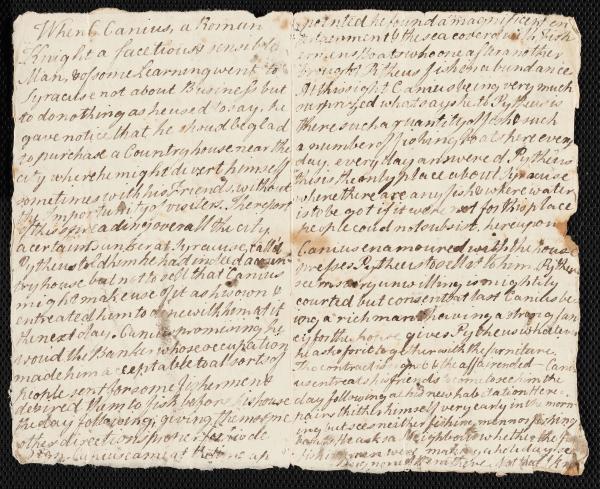 When C Canius, a Roman
Knight a facetious sensible
Man, & of some Learning went to
Syracuse not about Business but
to do nothing as he used to say, he
gave notice that he shoud be glad
to purchase a Country house near the
city where he might divert himself
sometimes with his Friends, without
the Importunity of visiters. The report
of this spreading over all the city
a certain Banker at Syracuse, call'd
Pytheus told him he had indeed a coun-
try house but not to sell that Canius
might make use of it as his own &
entreated him to dine with him at it
the next day. Canius promising he
woud the Banker whose occupation
made him acceptable to all sorts of
people sent for some fishermen &
desired them to fish before his house
the day following, giving them some
other directions proper for
Canius came at the time ap
pointed he found a magnificent en
tertainment & the sea coverd with Fish
ermens Boats who one after another
brought Pytheus fishes in abundance
At this sight Canius being very much
surprized what says he to Pytheus is
there such a quantity of fish & such
a number of fishing boats here every
day. every day answered Pytheus
this is the only place about Syracuse
where there are any fish or where water
is to be got if it were not for this place
people coud not subsist, hereupon
Canius enamoured with the house
presses Pytheus to sell it to him. Pytheus
seems very unwilling is mightily
courted but consents at last Canius be
ing a rich man & having a strong fan
cy for the house gives Pytheus whatever
he asks for it together with the furniture.
The contract is sign'd the affair ended - Cani
us entreats his friends to come to see him the
day following at his new habitation & re
pairs thither himself very early in the morn
ing but sees neither fishermen nor fishing
boats he asks a Neighbour whether the
fishermen were making a holyday